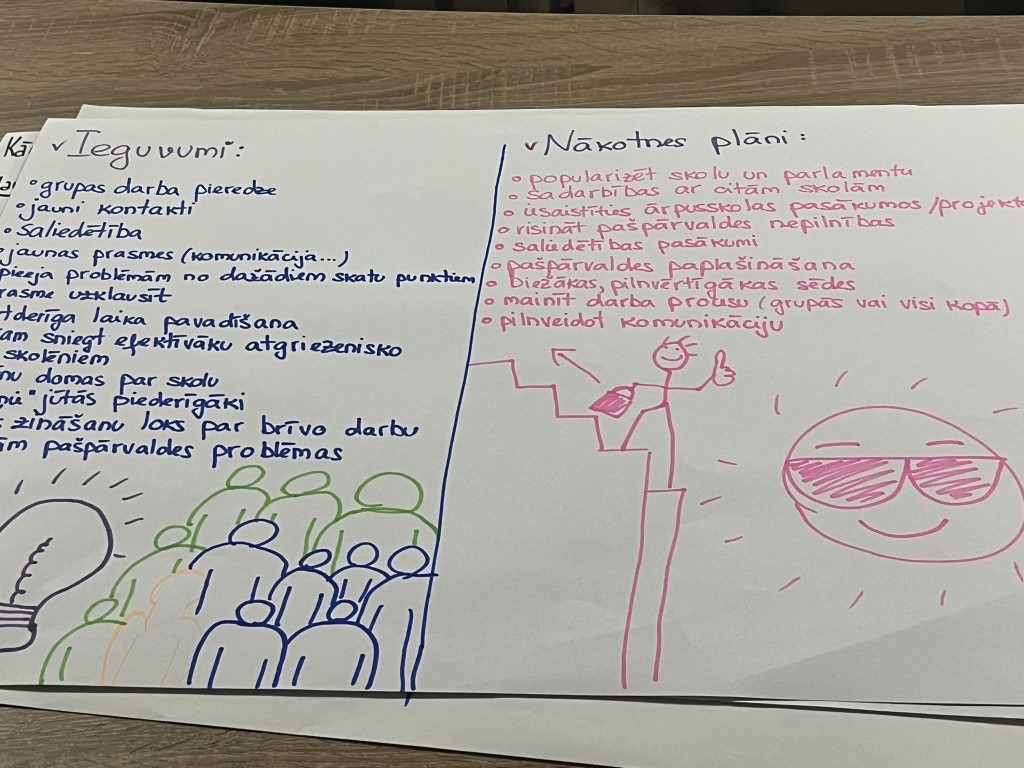 Kā
v Ieguvumi:
• grupas darba pieredze
• jauni kontakti
• Saliedētība
• jaunas prasmes (komunikācija...)
pieeja problēmām no dažādiem skatu punktiem
rasme uzklausīt
tderīga laika pavadīšana
am sniegt efektīvāku atgriezenisko
skolēniem
nu domas par skolu
jūtās piederīgāki
zināšanu loks par brīvo darbu
ām pašpārvaldes problēmas
v Nākotnes plāni:
• popularizēt skolu un parlamentu
• sadarbības ar citām skolām
• iesaistīties ārpusskolas pasākumos/projekto
• risināt pašpārvaldes nepilnības
• saliedētības pasākumi
• pašpārvaldes paplašināšana
• biežākas, pilnvērtīgākas sēdes
• mainīt darba procesu (grupās vai visi kopā)
• pilnveidot komunikāciju